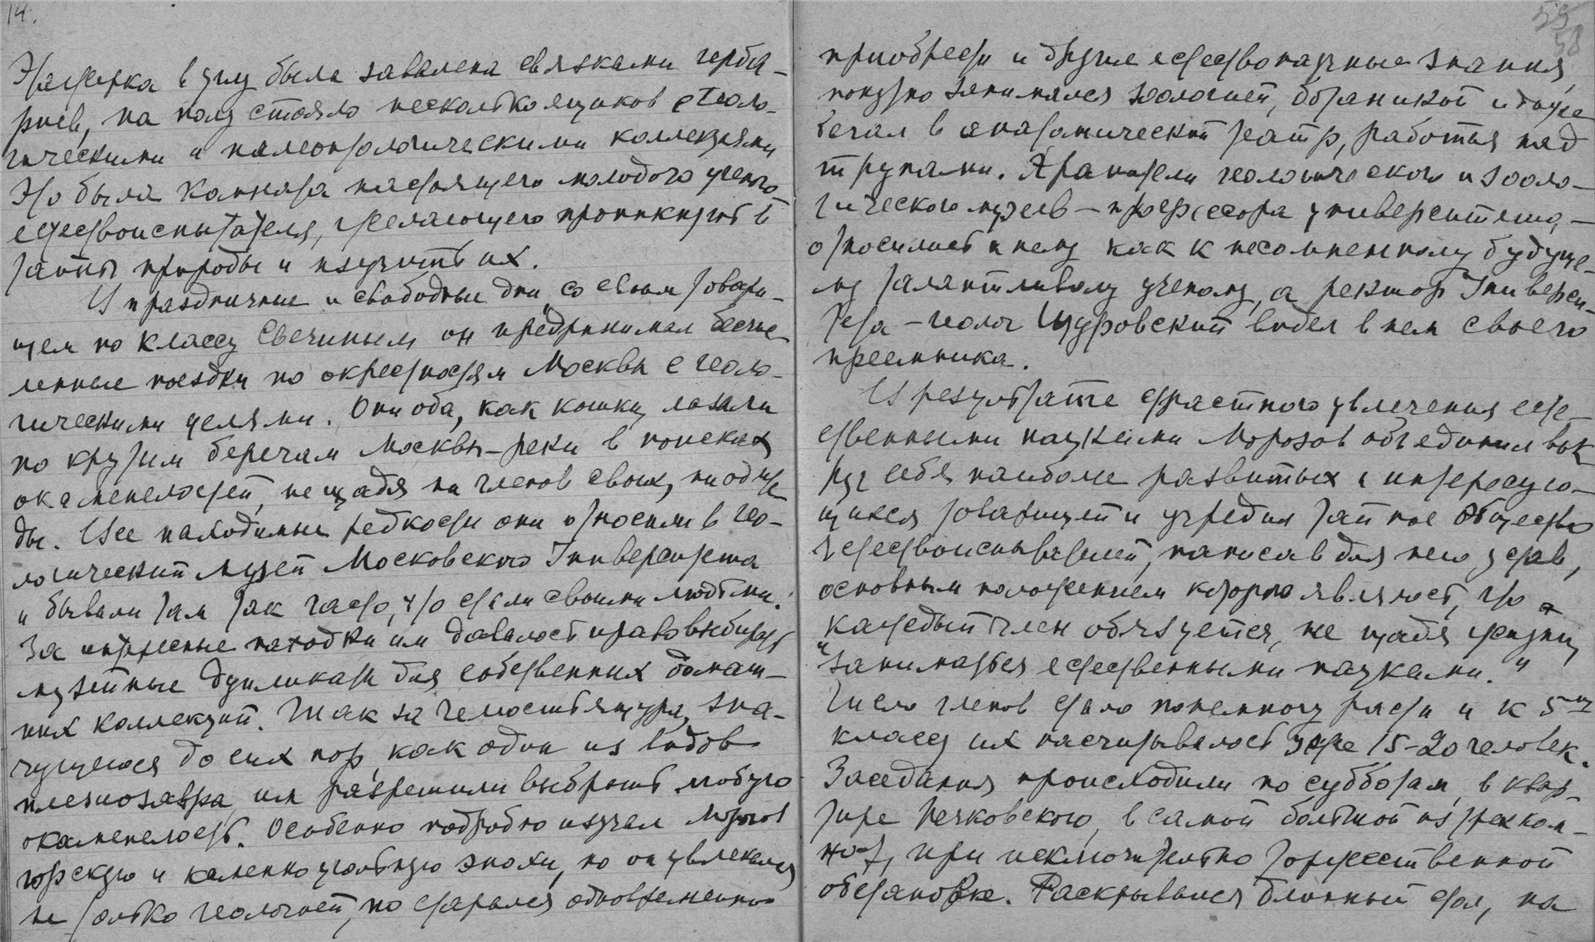 14.
Этажерка в углу была завалена связками герба-
риев, на полу стояло несколько ящиков с геоло-
гическими и палеонтологическими коллекциями
Это была комната настоящего молодого ученого
естествоиспытателя, желающего проникнуть в
тайны природы и изучить их.
В праздничные и свободные дни со своим товари-
щем по классу Свечиным он предпринимал бесчис
ленные поездки по окрестностям Москвы с геоло-
гическими целями. Они оба, как кошки, лазали
по крутым берегам Москвы-реки в поисках
окаменелостей, не щадя ни членов своих, ни одеж
ды. Все находимые редкости они относили в гео-
логический музей Московского Университета
и бывали там так часто, что стали своими людьми.
За интересные находки им давалось право выбирать
музейные дупликаты для собственных домаш-
них коллекций. Так за челюсть ящура, зна-
чущегося до сих пор, как один из видов
плезиозавра им разрешили выбрать любую
окаменелость. Особенно подробно изучал Морозов
юрскую и каменноугольную эпохи, но он увлекался
не только геологией, но старался одновременно
59
58
приобрести и другие естественонаучные знания,
попутно занимался зоологией, ботаникой и даже
бегал в анатомический театр, работая над
трупами. Хранители геологического и зооло-
гического музеев - профессора университета, -
относились к нему как к несомненному будуще-
му талантливому ученому, а ректор Универси-
тета - геолог Щуровский видел в нем своего
преемника.
В результате страстного увлечения есте-
ственными науками Морозов объединил вок
руг себя наиболе развитых и интересую-
щихся товарищей и учредил тайное общество
естествоиспытателей, написав для него устав,
основным положением которого являлось, что
"каждый член обязуется, не щадя жизни,
заниматься естественными науками."
Число членов стало понемногу расти и к 5му
классу их насчитывалось уже 15-20 человек.
Заседания происходили по субботам, в квар-
тире Печковского, в самой большой из трех ком-
нат, при исключительно торжественной
обстановке. Раскрывался длинный стол, на